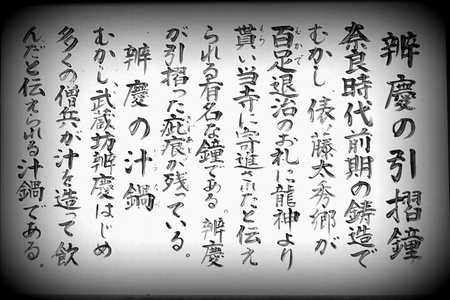 辨慶の引摺鐘
奈良時代前期の鋳造で
むかし 俵藤太秀郷が
百足退治のお礼に龍神より
むかで
貰い当寺に寄進されたと伝え
もら
られる有名な鐘である。辨慶
が引摺った疵痕が残っている。
きずあと
辨慶の汁鍋
むかし武蔵坊辨慶はじめ
多くの僧兵が汁を造って飲
んだと伝えられる汁鍋である。